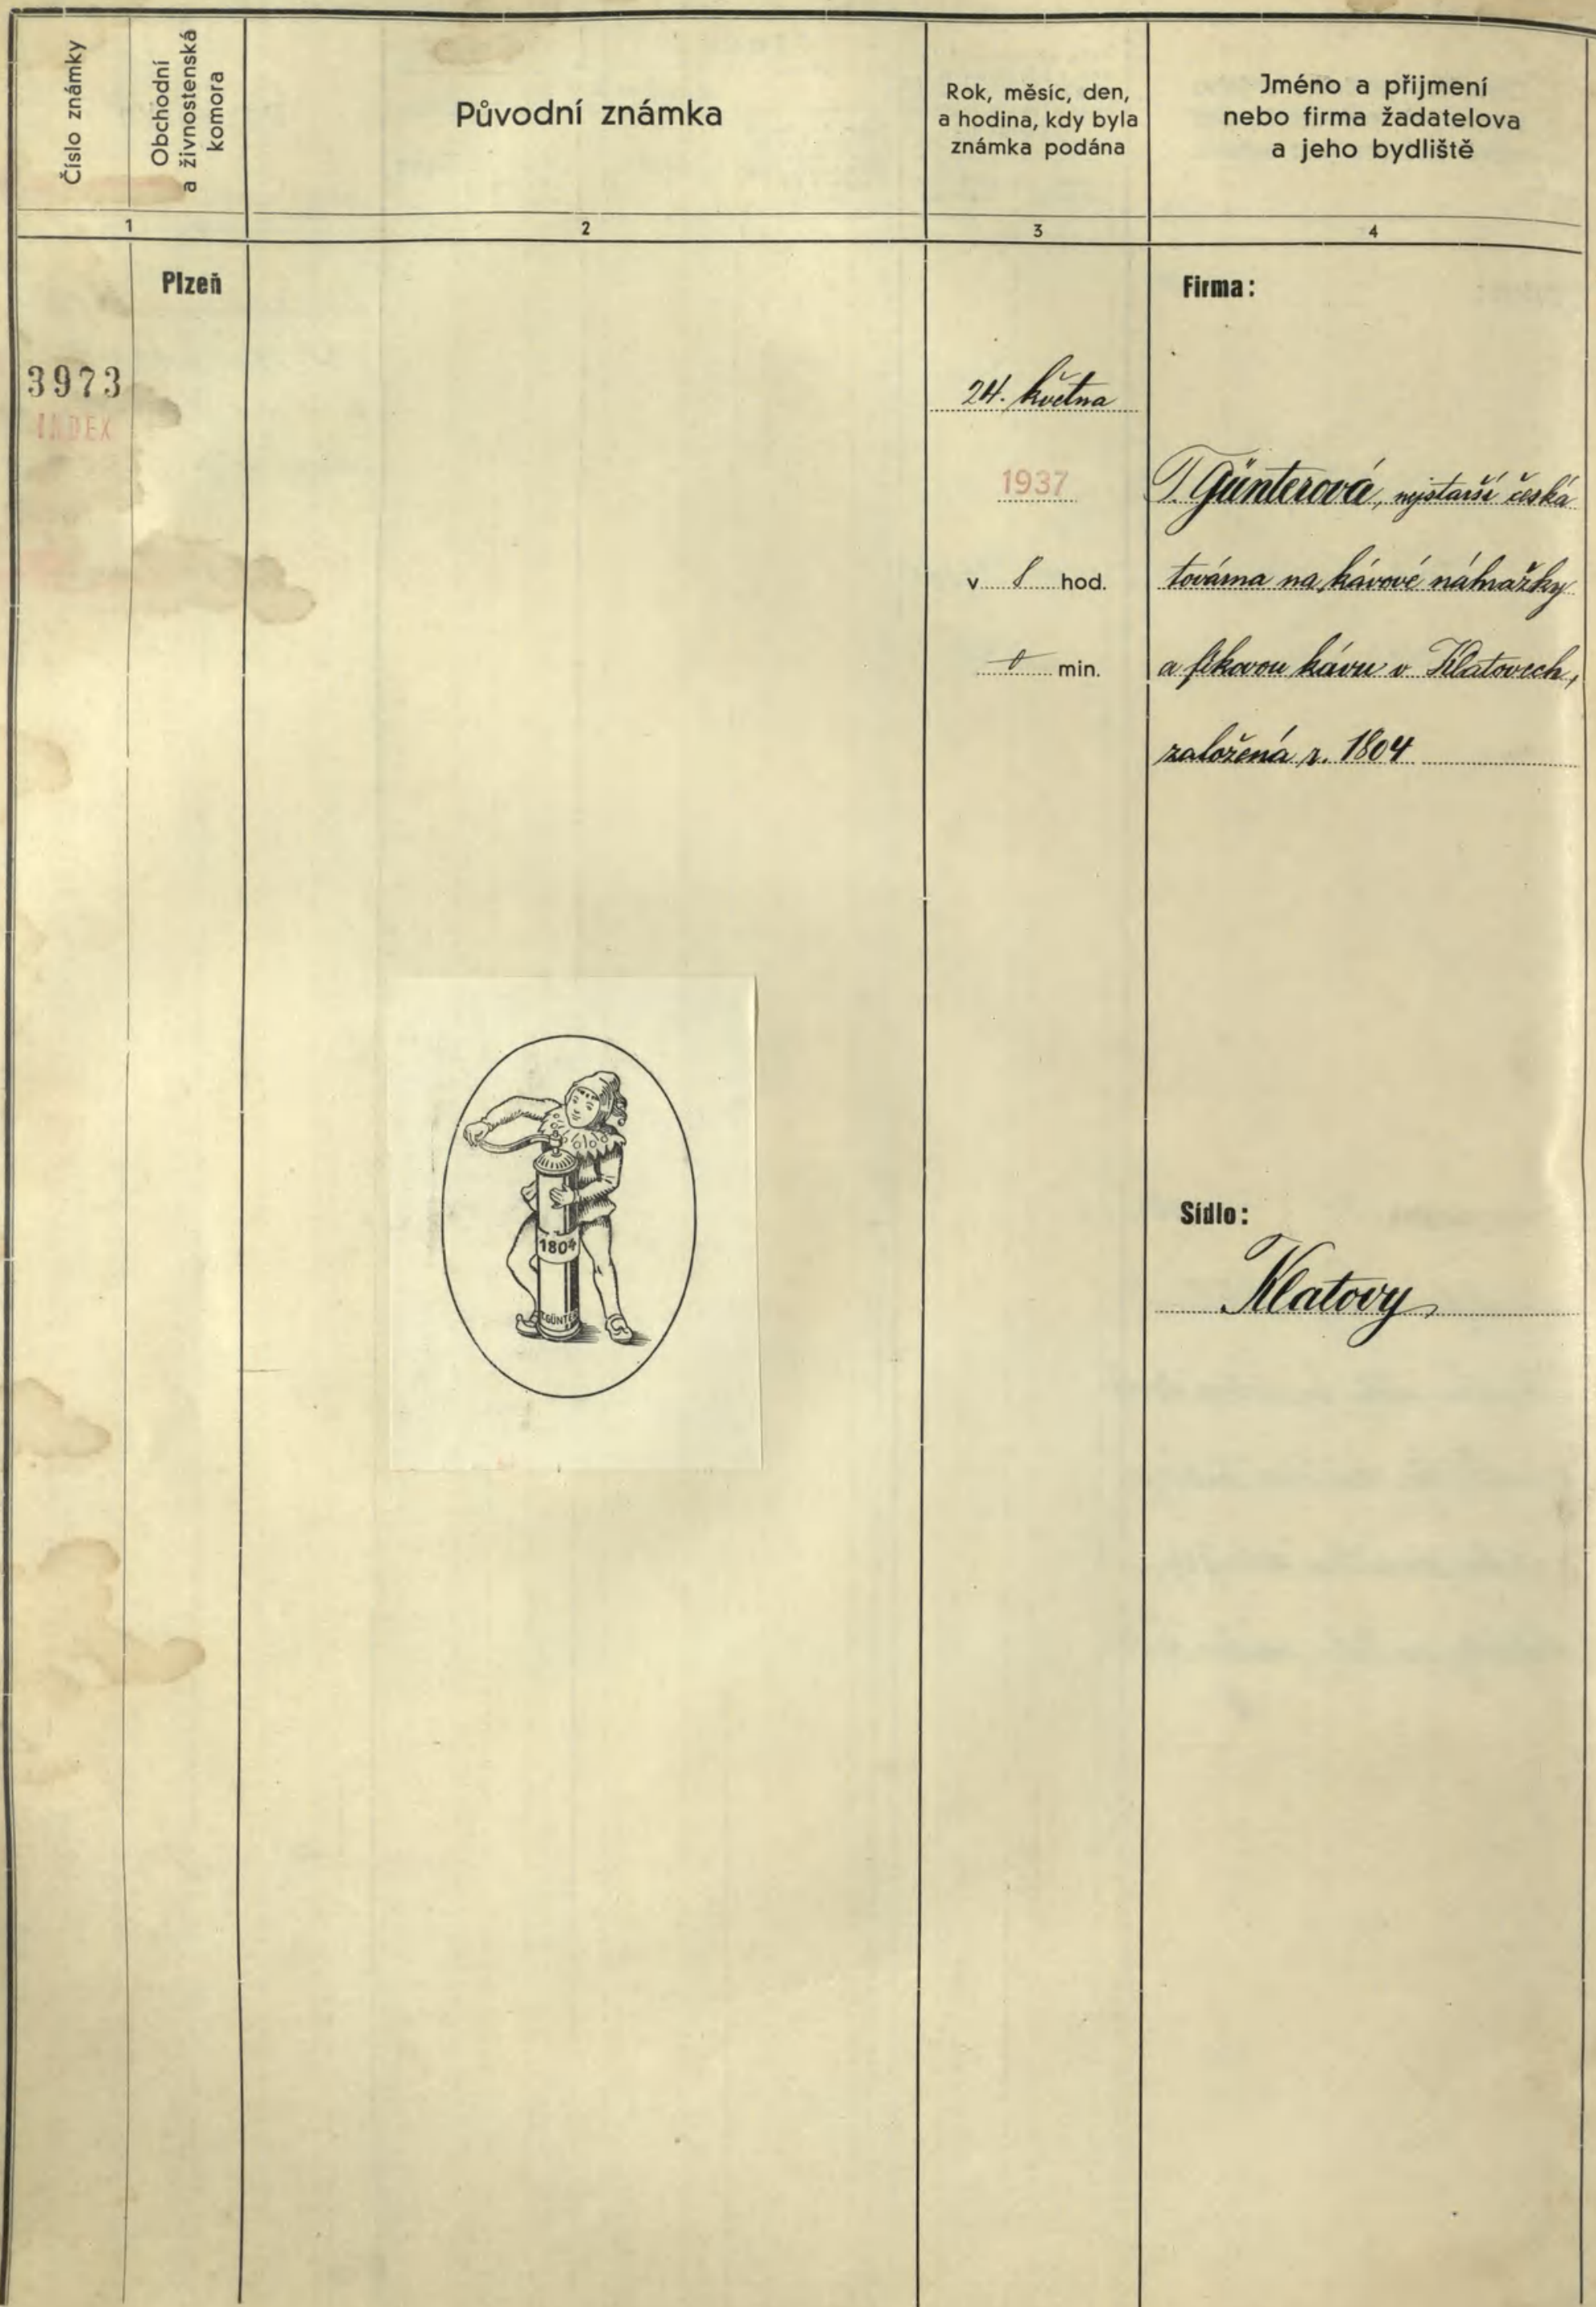 Číslo známky
Obchodní
a živnostenská
komora
Původní známka
Rok, měsíc, den,
a hodina, kdy byla
známka podána
Jméno a přijmení
nebo firma žadatelova
a jeho bydliště
1
2
3
4
Plzeň
3973
INDEX
24. května
1937
v 8 hod.
min.
Firma:
Günterová, nejstarší česká
továrna na kávové náhražky
a fíkovou kávu v Klatovech,
založená r. 1804
1804
GÜNTER
Sídlo:
Klatovy